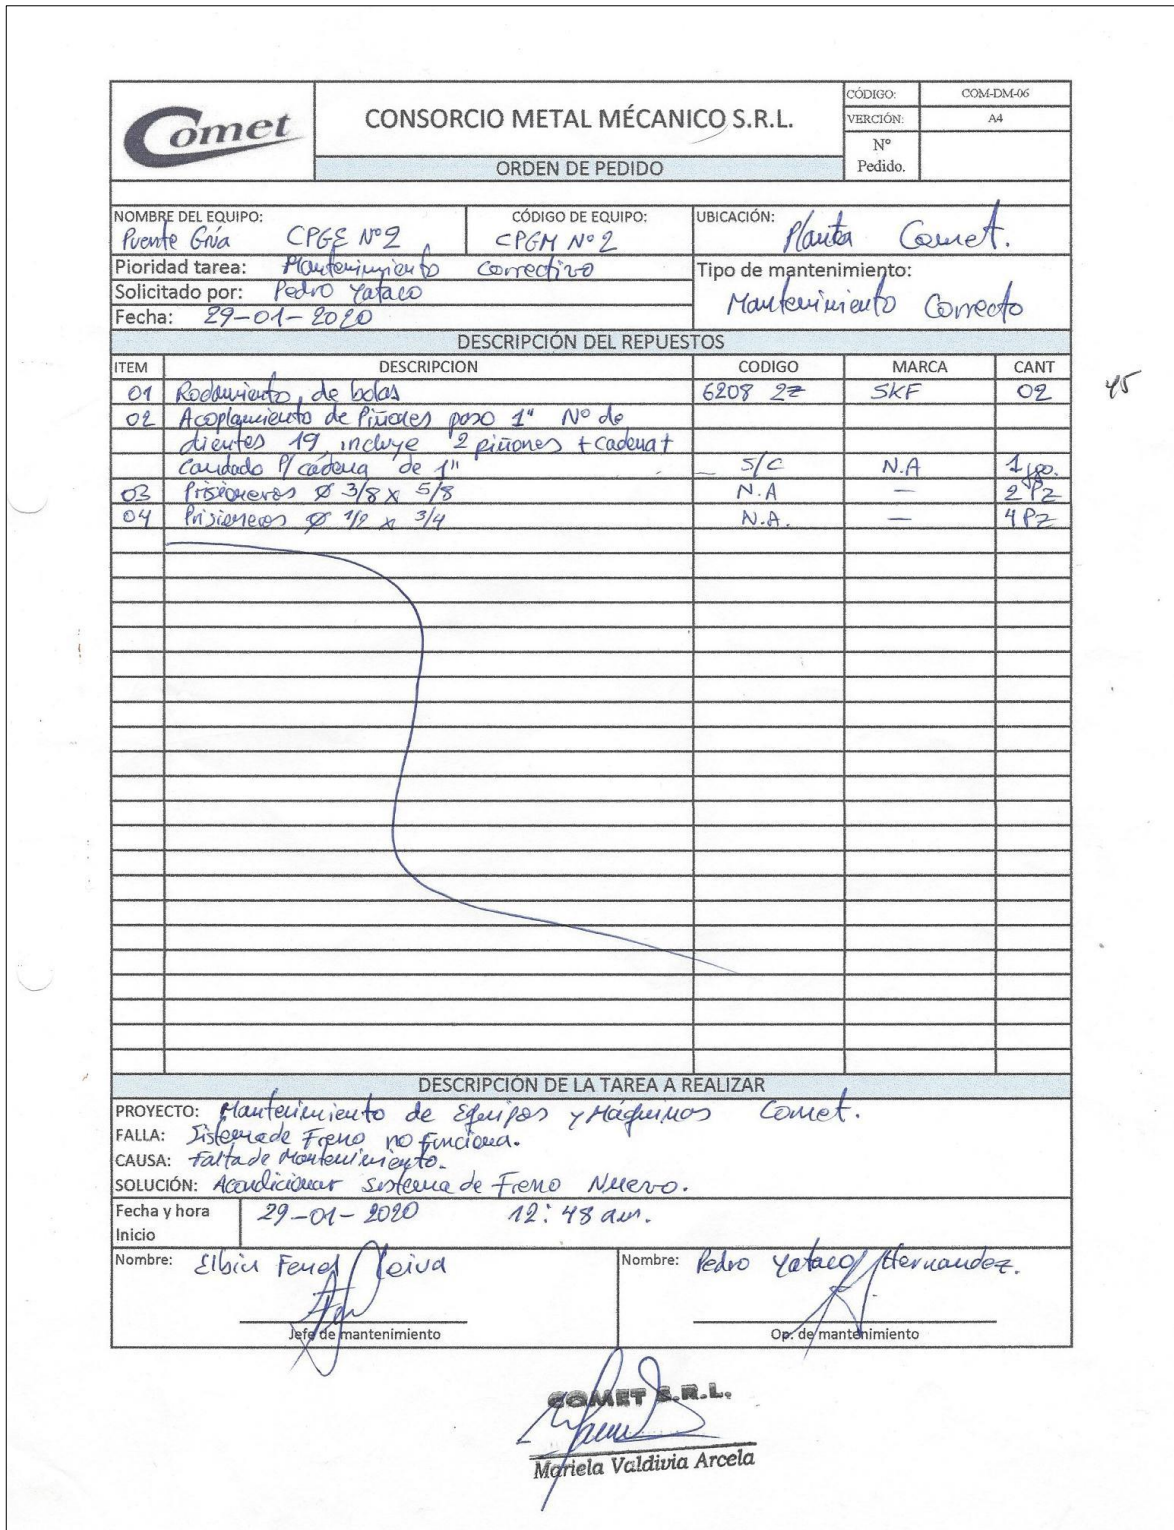 Comet
CONSORCIO METAL MÉCANICO S.R.L.
CÓDIGO: COM-DM-06
VERCIÓN: A4
N° Pedido.
ORDEN DE PEDIDO
NOMBRE DEL EQUIPO: Puente Grúa CPGE N°2
CÓDIGO DE EQUIPO: CPGM N°2
UBICACIÓN: Planta Comet.
Pioridad tarea: Mantenimiento correctivo
Tipo de mantenimiento: Mantenimiento Correcto
Solicitado por: Pedro Yataco
Fecha: 29-01-2020
DESCRIPCIÓN DEL REPUESTOS
ITEM DESCRIPCION CODIGO MARCA CANT
01 Rodamiento de bolas 6208 2Z SKF 02
02 Acoplamiento de Piñones paso 1" N° de
dientes 19, incluye 2 piñones + cadena +
Candado P/ cadena de 1" S/C N.A 1 jgo.
03 Prisioneros Ø 3/8 x 5/8 N.A — 2 Pz
04 Prisioneros Ø 1/2 x 3/4 N.A. — 4 Pz
DESCRIPCIÓN DE LA TAREA A REALIZAR
PROYECTO: Mantenimiento de Equipos y Máquinas Comet.
FALLA: Sistema de Freno no funciona.
CAUSA: Falta de Mantenimiento.
SOLUCIÓN: Acondicionar Sistema de Freno Nuevo.
Fecha y hora Inicio 29-01-2020 12:48 am.
Nombre: Elbin Leiva
Nombre: Pedro Yataco Hernandez.
Jefe de mantenimiento
Op. de mantenimiento
COMET S.R.L.
Mariela Valdivia Arcela